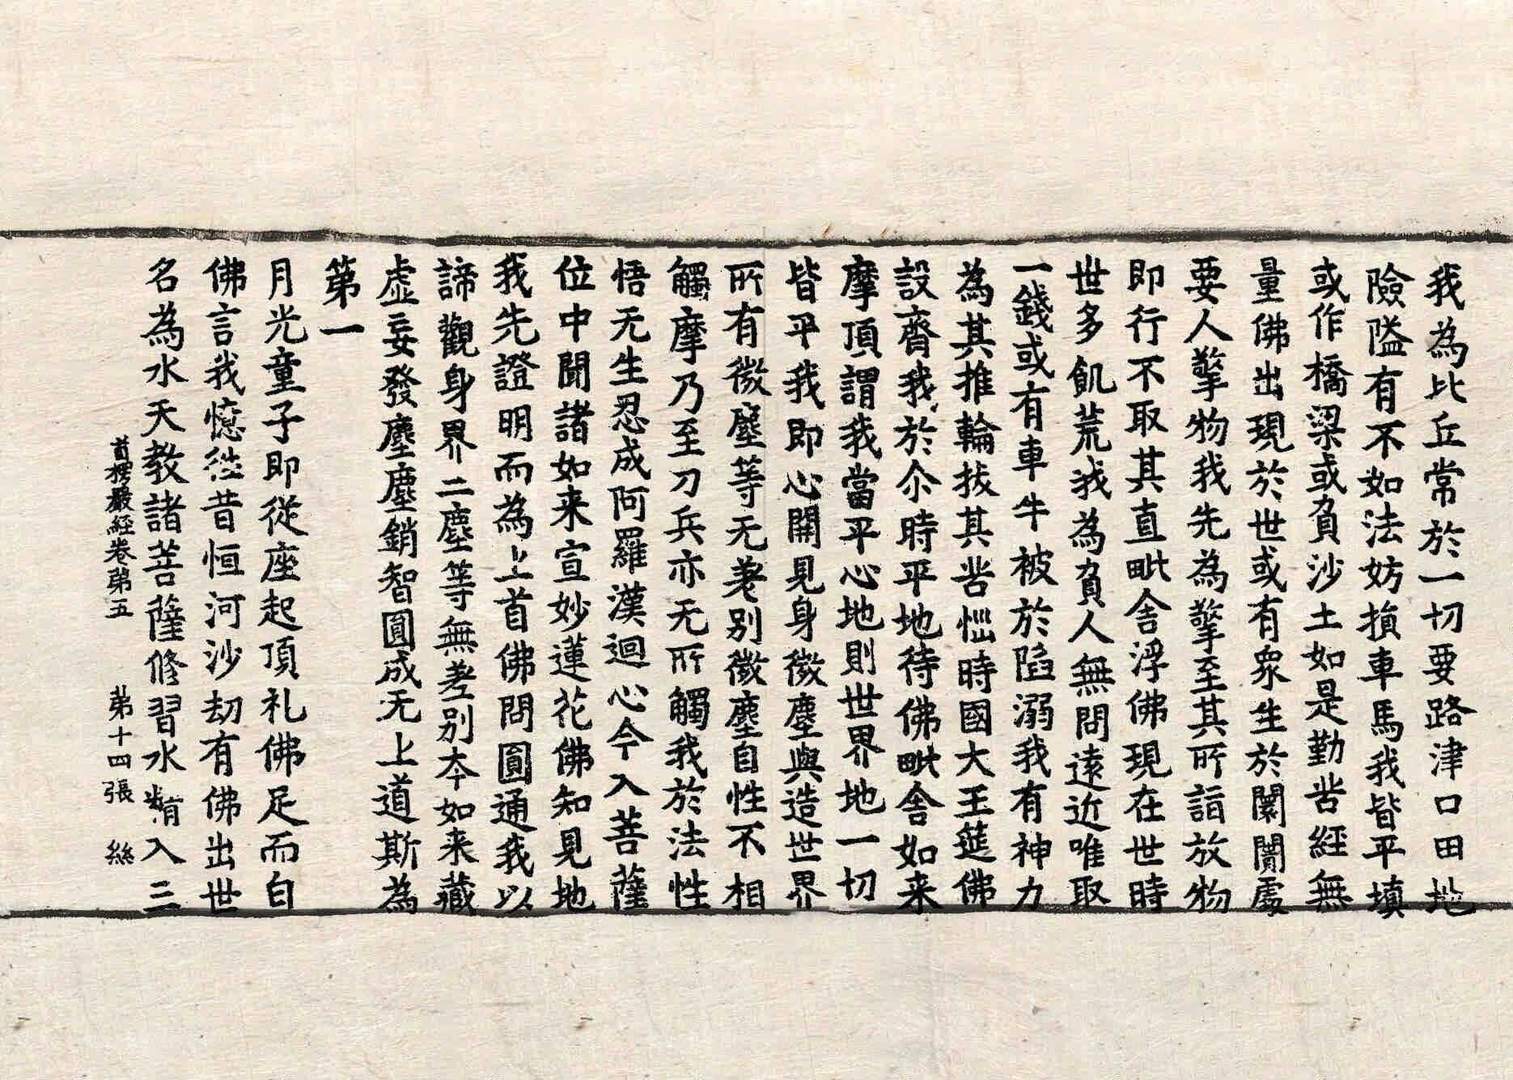 我為比丘常於一切要路津口田地
險隘有不如法妨損車馬我皆平填
或作橋梁或負沙土如是勤苦經無
量佛出現於世或有眾生於闤闠處
要人擎物我先為擎至其所詣放物
即行不取其直毗舍浮佛現在世時
世多飢荒我為負人無問遠近唯取
一錢或有車牛被於陷溺我有神力
為其推輪拔其苦惱時國大王筵佛
設齋我於尒時平地待佛毗舍如来
摩頂謂我當平心地則世界地一切
皆平我即心開見身微塵與造世界
所有微塵等无差別微塵自性不相
觸摩乃至刀兵亦无所觸我於法性
悟无生忍成阿羅漢迴心今入菩薩
位中聞諸如来宣妙蓮花佛知見地
我先證明而為上首佛問圓通我以
諦觀身界二塵等無差別夲如来藏
虛妄發塵塵銷智圓成无上道斯為
第一
月光童子即從座起頂礼佛足而白
佛言我憶往昔恒河沙劫有佛出世
名為水天教諸菩薩修習水精入三
首楞嚴經卷第五 第十四張 絲